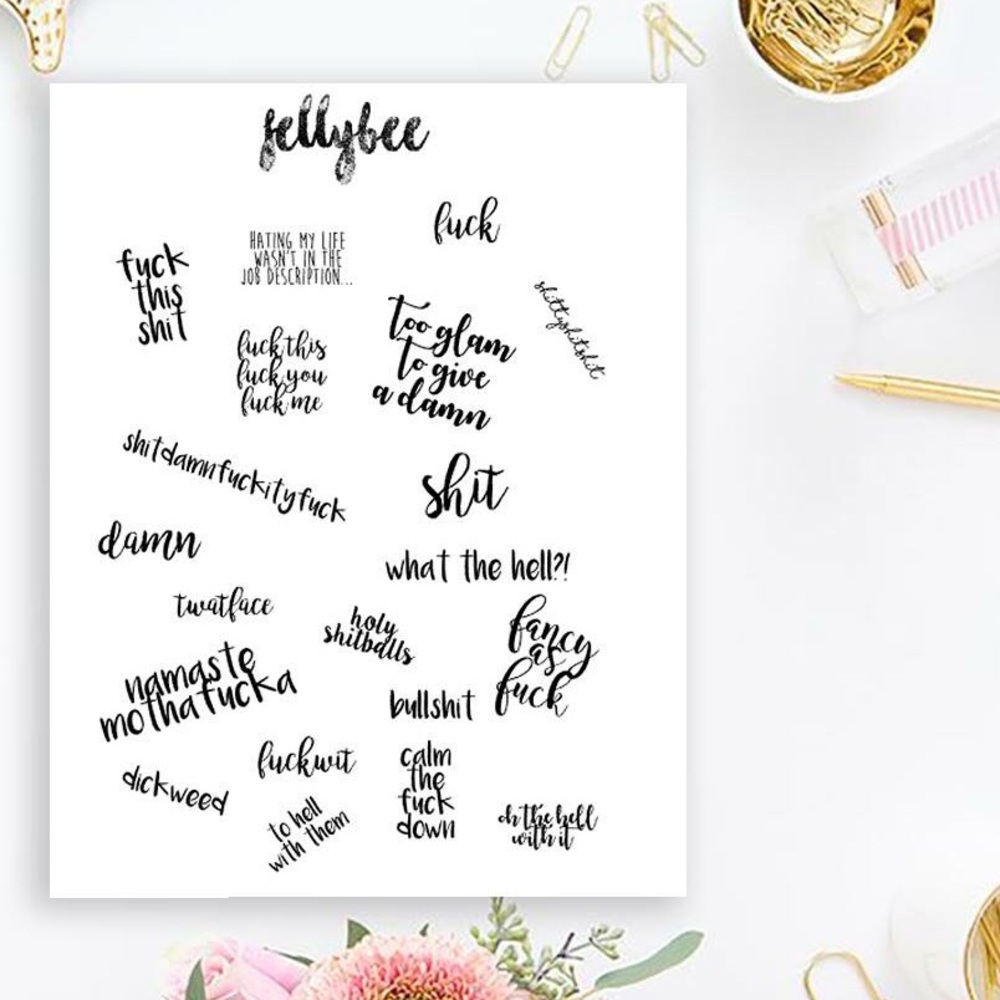 fellybee
fuck
HATING MY LIFE
WASN'T IN THE
JOB DESCRIPTION...
fuck
this
shit
shittyshitshit
Too glam
to give
a damn
fuck this
fuck you
fuck me
shitdamnfuckityfuck
shit
damn
what the hell?!
twatface
holy
shitballs
fancy
as
fuck
namaste
mothafucka
bullshit
fuckwit
calm
the
fuck
down
dickweed
to hell
with them
oh the hell
with it